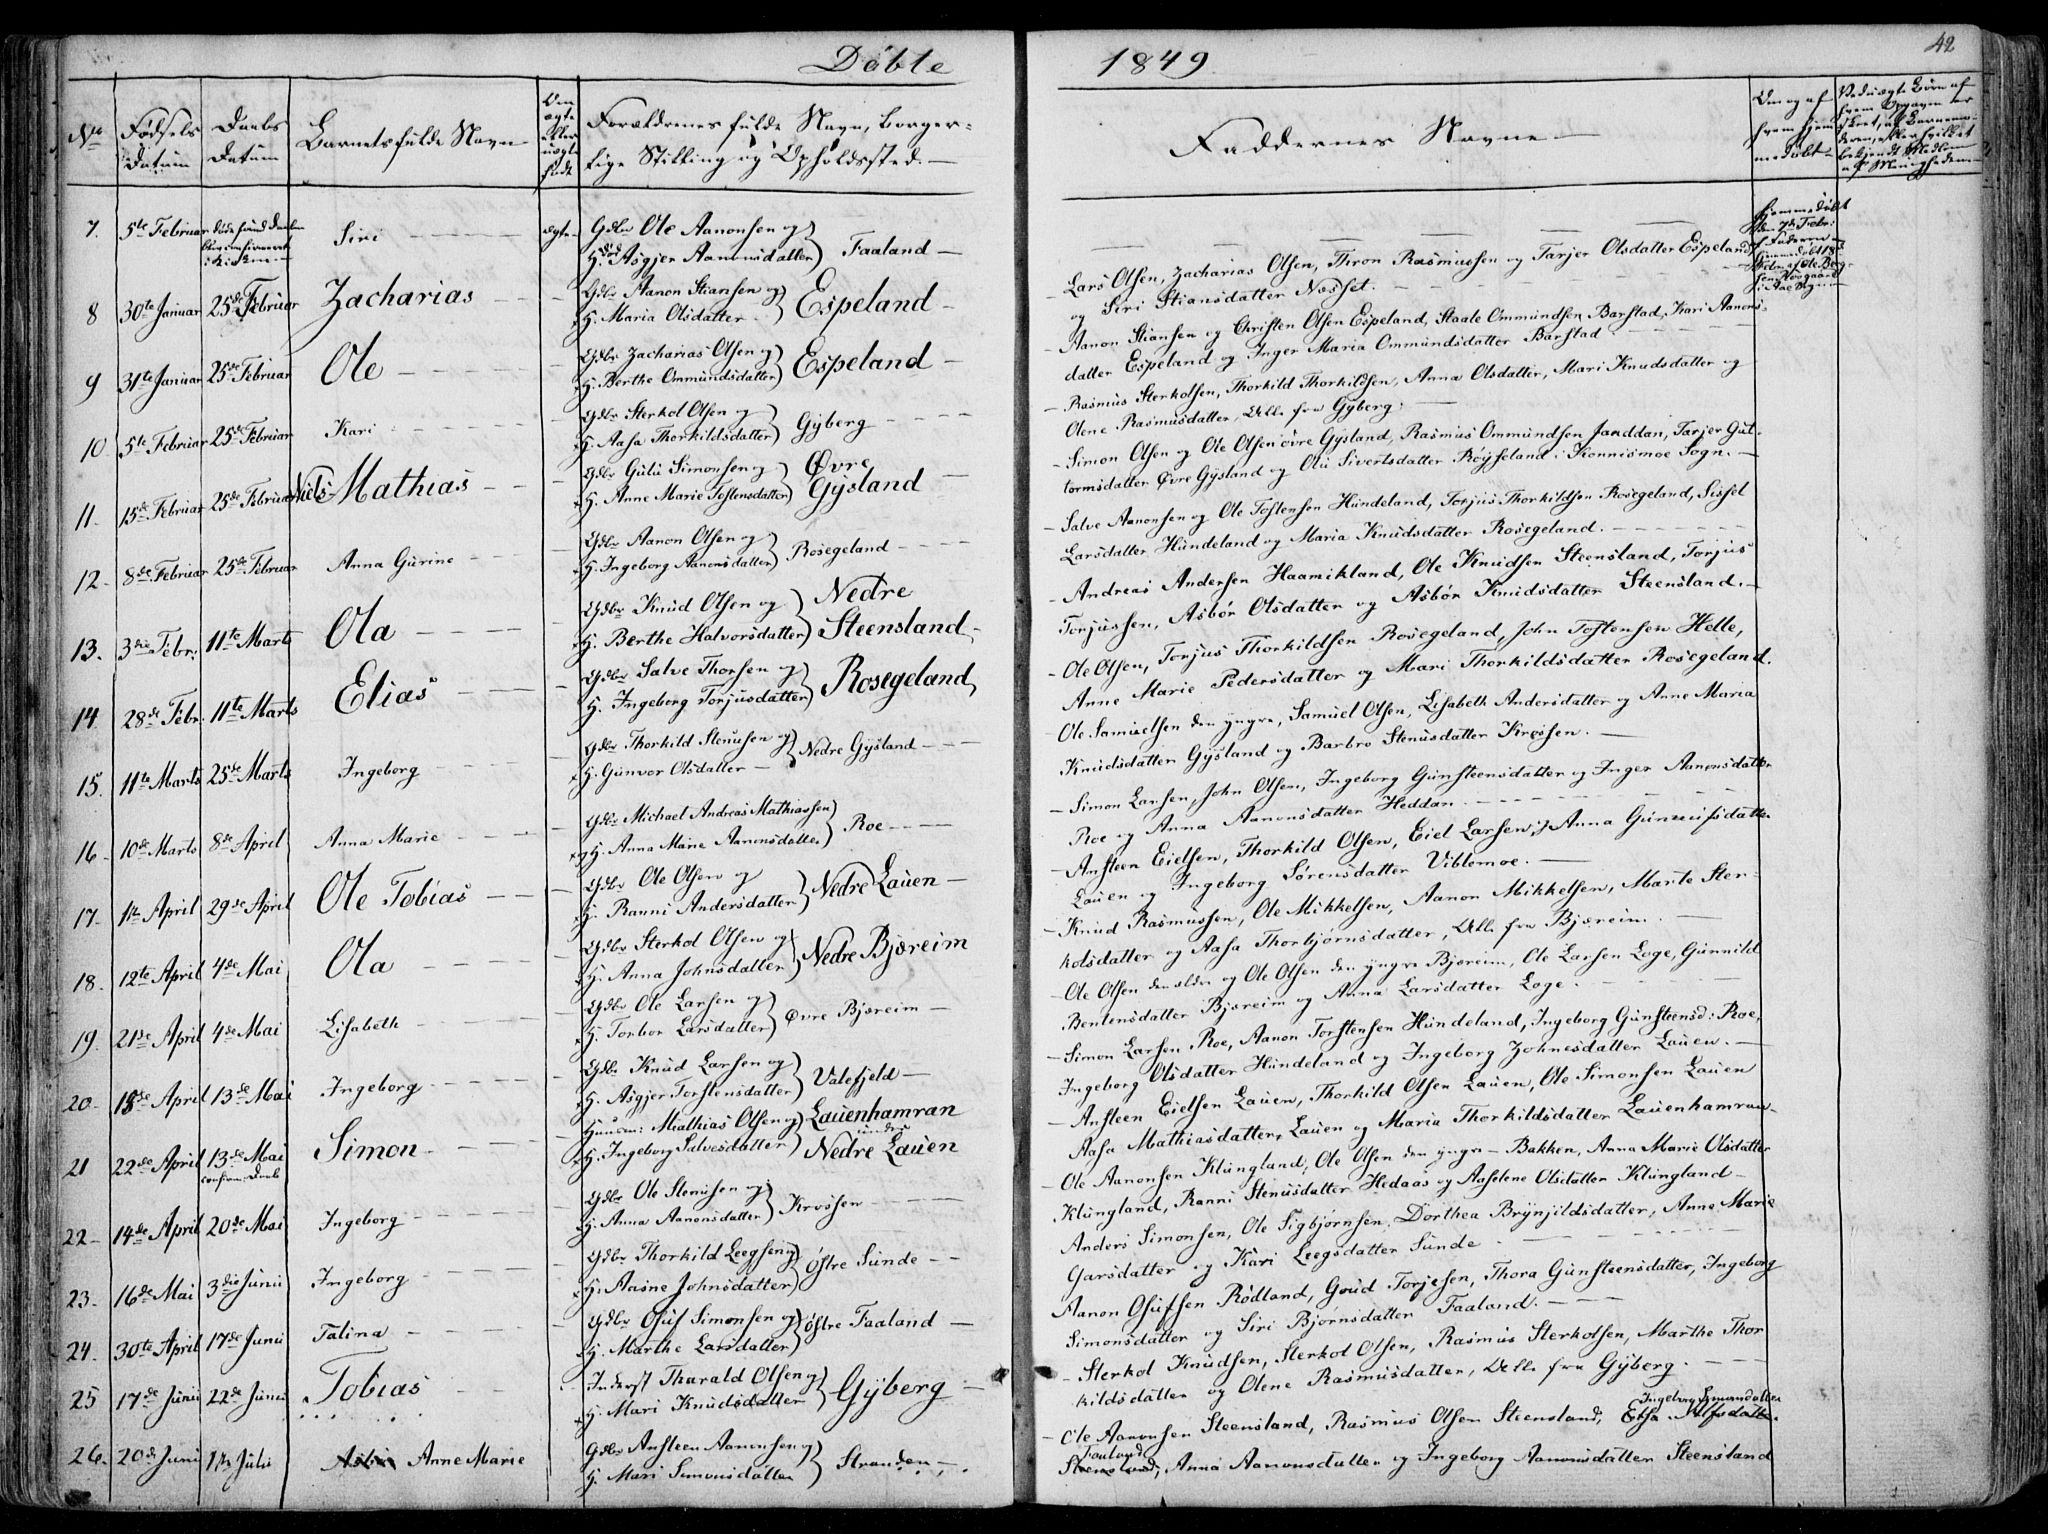 Døbte
1849
42
No
Fødsels Datum
Daabs Datum
Barnets fulde Navn
Om ægte eller uægte født
Forældrenes fulde Navn, borger-
lige Stilling og Opholdssted.
Faddernes Navne
Om og af hvem hjemmedøbt
7. 5te Februar Siri ægte Gdbr Ole Aanonsen og
H. Asgjer Aanonsdatter Faaland
8 30te Januar 25de Februar Zacharias Gdbr Aanon Stiansen og
H. Maria Olsdatter Espeland
Lars Olsen, Zacharias Olsen, Thron Rasmussen og Tarjer Olsdatter Espeland
og Siri Stiansdatter Næset.
9 31te Januar 25de Februar Ole Gdbr Zacharias Olsen og
H. Berthe Ommundsdatter Espeland
Aanon Stiansen og Christen Olsen Espeland, Staale Ommundsen Barstad, Kari Aanons-
datter Espeland og Inger Maria Ommundsdatter Barstad
10 5te Februar 25de Februar Kari Gdbr Sterkol Olsen og
H. Aasa Thorkildsdatter Gyberg
Rasmus Sterkolsen, Thorkild Thorkildsen, Anna Olsdatter, Mari Knudsdatter og
Olene Rasmusdatter, Alle fra Gyberg.
11. 15de Februar 25de Februar Niels Mathias Gdbr Gulu Simonsen og
H. Anne Marie Tostensdatter Øvre Gysland
Simon Olsen og Ole Olsen øvre Gysland, Rasmus Ommundsen Janddan, Tarjer Gut-
tormsdatter Øvre Gysland og Olu Sivertsdatter Røyseland i Konnismoe Sogn.
12 8de Februar 25de Februar Anna Gurine Gdbr Aanon Olsen og
H. Ingeborg Aanonsdatter Rosegeland
Salve Aanonsen og Ole Tostensen Hundeland, Torjus Thorkildsen Rosegeland, Sissel
Larsdatter Hundeland og Maria Knudsdatter Rosegeland.
13. 3die Febr: 11te Marts Ola Gdbr Knud Olsen og
H. Berthe Halvorsdatter Nedre Steensland
Andreas Andersen Haamikland, Ole Knudsen Steensland, Torjus
Torjussen, Asbør Olsdatter og Asbør Knudsdatter Steensland.
14 28de Febr: 11te Marts Elias Gdbr Salve Thorsen og
H. Ingeborg Torjusdatter Rosegeland
Ole Olsen, Torjus Thorkildsen Rosegeland, John Tostensen Helle,
Anne Marie Pedersdatter og Mari Thorkildsdatter Rosegeland.
15. 11te Marts 25de Marts Ingeborg Gdbr Thorkild Stenusen og
H. Gunvor Olsdatter Nedre Gysland
Ole Samuelsen den yngre, Samuel Olsen, Lisabeth Andersdatter og Anne Maria
Knudsdatter Gysland og Barbro Stenusdatter Krøsen.
16 10de Marts 8de April Anna Marie Gdbr Michael Andreas Mathiassen
og H. Anna Marie Aanonsdatter Roe
Simon Larsen, John Olsen, Ingeborg Gunsteensdatter og Inger Aanonsdatter
Roe og Anna Aanonsdatter Heddan.
17. 1te April 29de April Ole Tobias Gdbr Ole Olsen og
H. Ranni Andersdatter Nedre Lauen
Ansteen Eielsen, Thorkild Olsen, Eiel Larsen, Anna Gunnufsdatter
Lauen og Ingeborg Sørensdatter Viblemoe.
18. 12te April 4de Mai Ola Gdbr Sterkol Olsen og
H. Anna Johnsdatter Nedre Bjæreim
Knud Rasmussen, Ole Mikkelsen, Aanon Mikkelsen, Marte Ster-
kolsdatter og Aasa Thorbjørnsdatter, Alle fra Bjæreim.
19. 21de April 4de Mai Lisabeth Gdbr Ole Larsen og
H. Torbor Larsdatter Øvre Bjæreim
Ole Olsen den eldre og Ole Olsen den yngre Bjæreim, Ole Larsen Loge, Gunnild
Bentensdatter Bjæreim og Anna Larsdatter Loge.
20. 15de April 13de Mai Ingeborg Gdbr Knud Larsen og
H. Asgjer Torstensdatter Valefjeld
Simon Larsen Roe, Aanon Torstensen Hundeland, Ingeborg Gunsteensd: Roe,
Ingeborg Olsdatter Hundeland og Ingeborg Johnesdatter Lauen.
21 22de April 13de Mai confirm: Daab Simon Huusm: Mathias Olsen og
H. Ingeborg Salvesdatter Lauenhamran under Nedre Lauen
Ansteen Eielsen Lauen, Thorkild Olsen Lauen, Ole Simonsen Lauen
Aasa Mathiasdatter Lauen og Maria Thorkildsdatter Lauenhamran
22 14de April 20de Mai Ingeborg Gdbr Ole Stenusen og
H. Anna Aanonsdatter Krøsen
Ole Aanonsen Klungland, Ole Olsen den yngre Bakken, Anna Marie Olsdatter
Klungland, Ranni Stenusdatter Hedaas og Aaselene Olsdatter Klungland
23. 16de Mai 3die Junii Ingeborg Gdbr Thorkild Leegsen og
H. Aasne Johnsdatter Østre Sunde
Anders Simonsen, Ole Sigbjørnsen, Dorthea Brynjildsdatter, Anne Marie
Garsdatter og Kari Leegsdatter Sunde
24. 30te April 17de Junii Talina Gdbr Osuf Simonsen og
H. Marthe Larsdatter Østre Faaland
Aanon Osufsen Rødland, Goud Torjesen, Thora Gunsteensdatter, Ingeborg
Simonsdatter og Siri Bjørnsdatter Faaland.
25 17de Junii 22de Junii Tobias Inderst Tharald Olsen og
H. Mari Knudsdatter Gyberg
Sterkol Knudsen, Sterkol Olsen, Rasmus Sterkolsen, Marthe Thor
kildsdatter og Olene Rasmusdatter, Alle fra Gyberg.
26. 20de Junii 1te Julii Anne Marie Gdbr Ansteen Aanonsen og
H. Mari Simonsdatter Stranden
Ole Aanonsen Steensland, Rasmus Olsen Steensland,
Faaland, Anna Aanonsdatter og Ingeborg Aanonsdatter Steensland